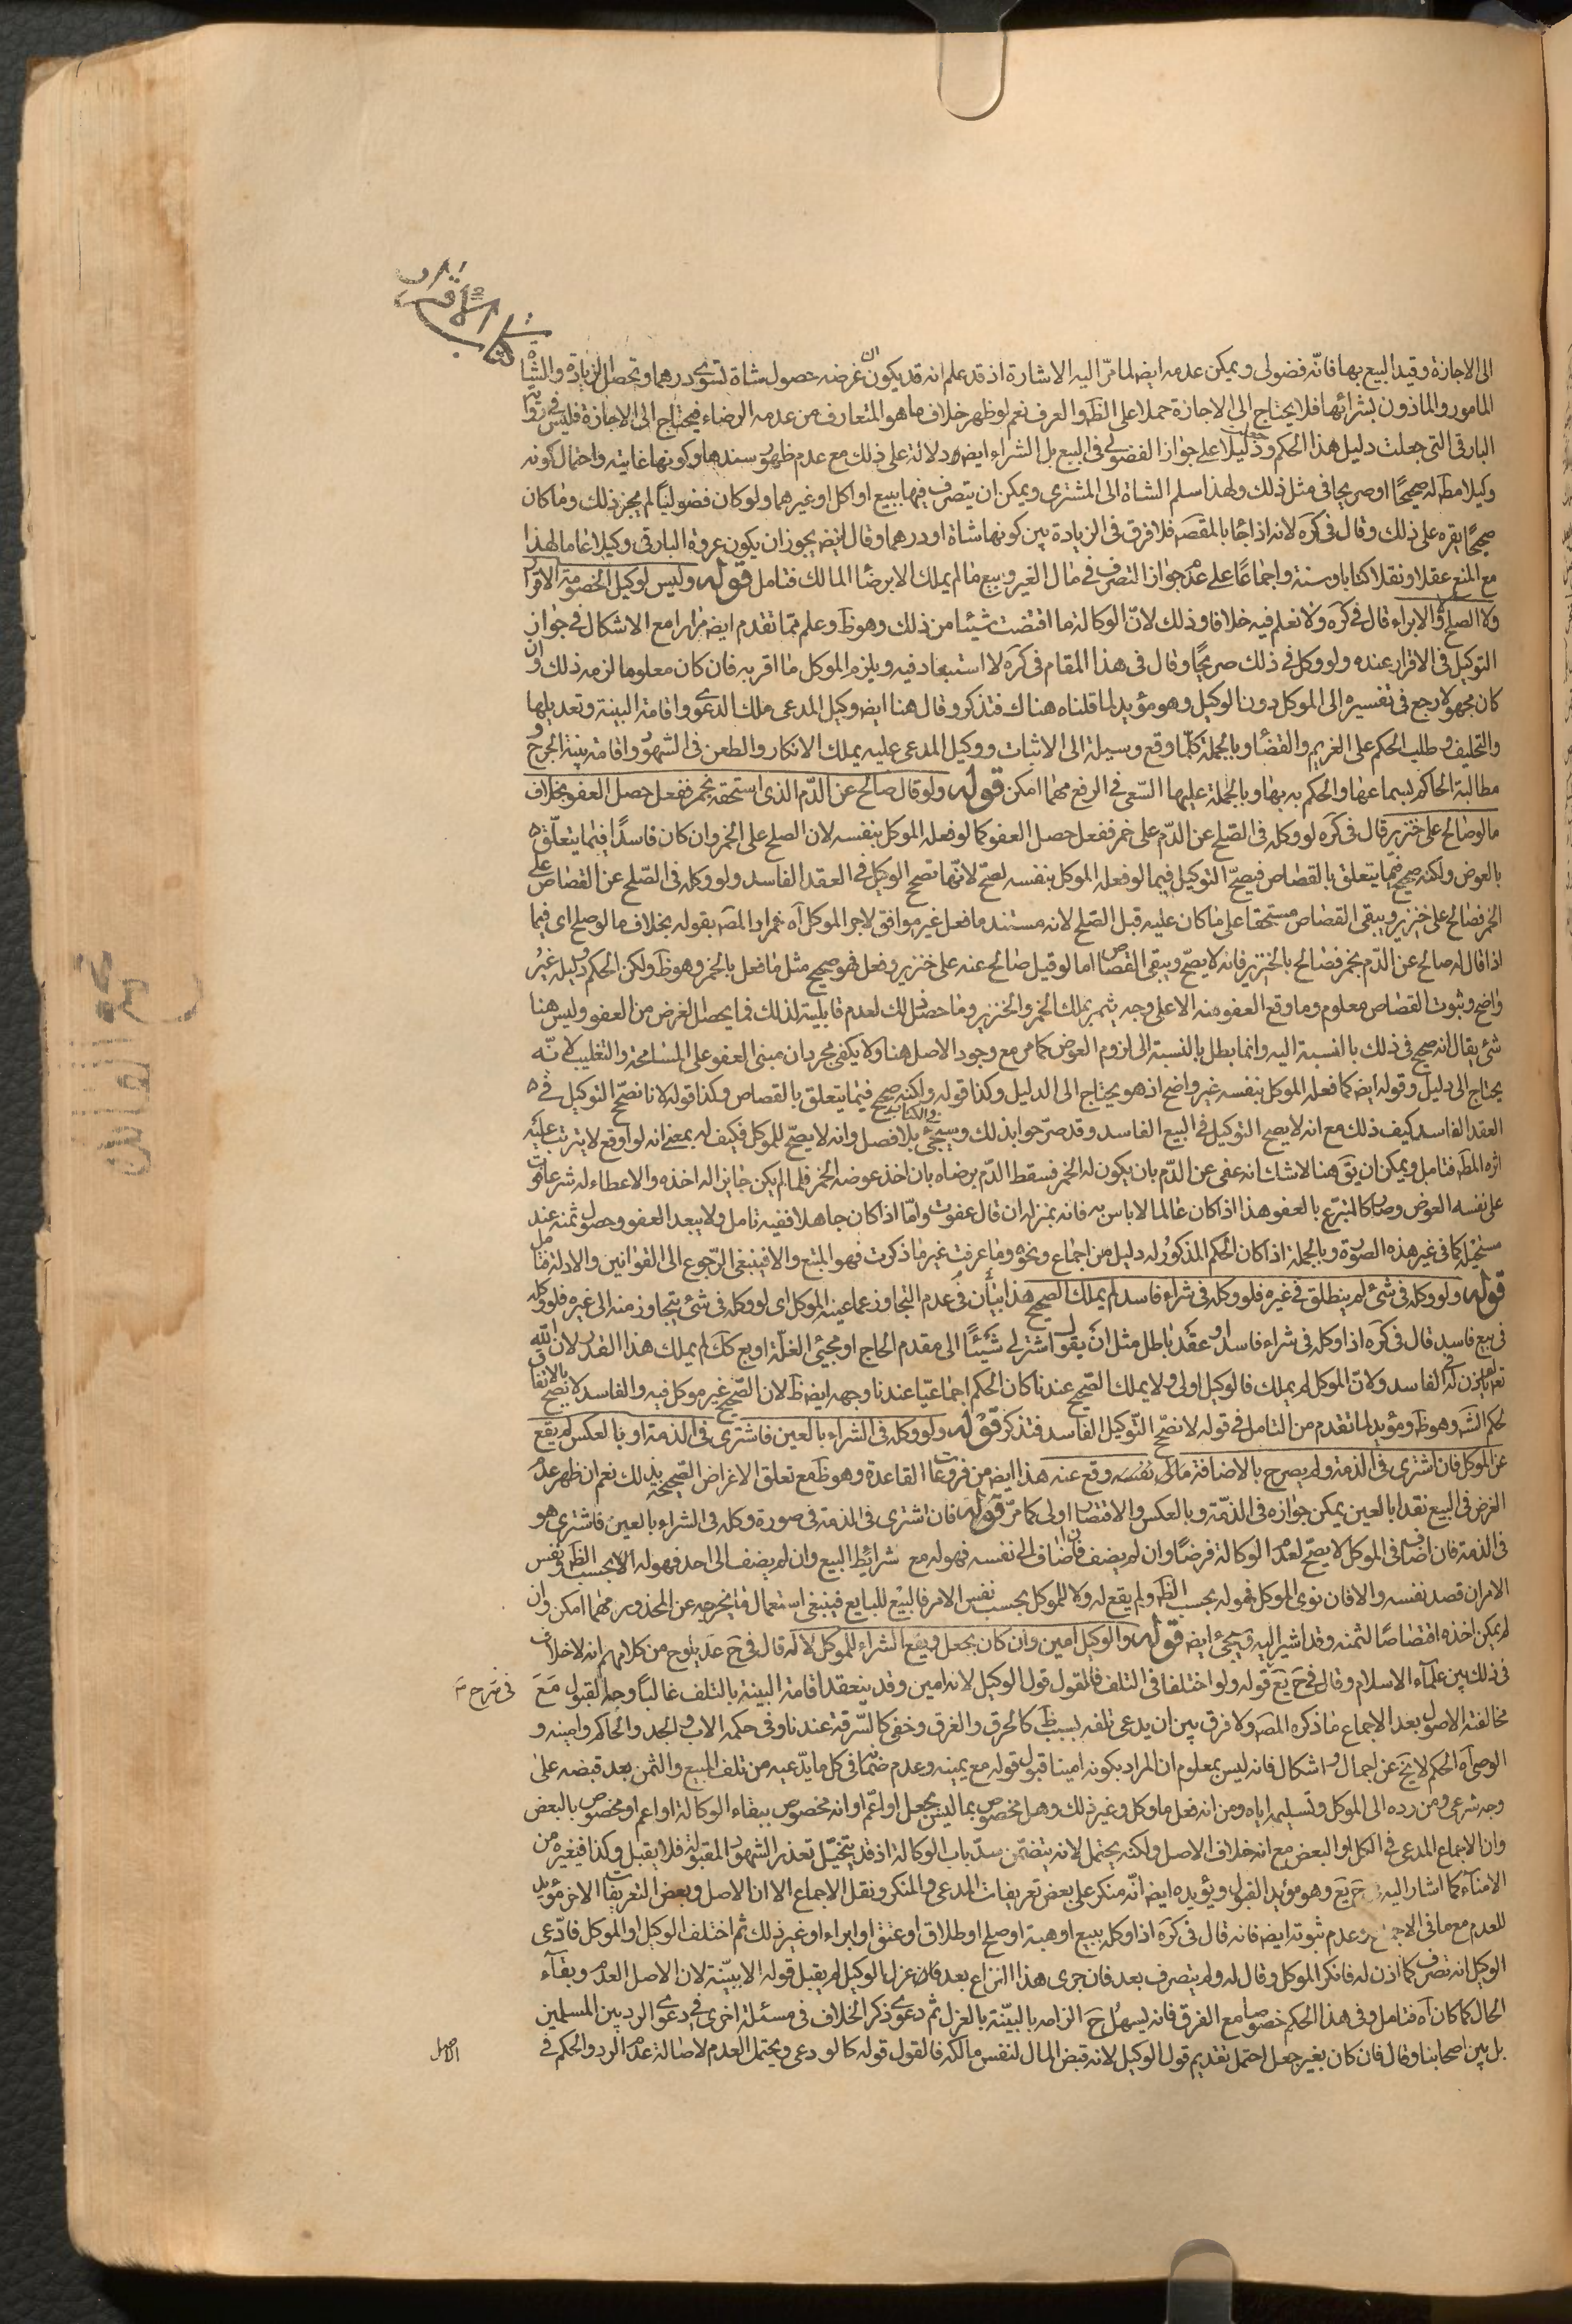 كتاب الاقرار
الى الاجازة وقيد البيع بها فانّه فضولى ويمكن عدمه ايضا لما مرّ اليه الاشارة اذ قد علم انه قد يكون غرضه حصول شاة تسوى درهما وتحصل الزيادة والشاة
المامور والماذون بشرائها فلا يحتاج الى الاجازة حملا على الظ والعرف نعم لو ظهر خلاف ما هو المتعارف من عدمه الرضاء فيحتاج الى الاجازة فليس فى رواية
البارقى التى جعلت دليل هذا الحكم ودليلا على جواز الفضولى فى البيع بل الشراء ايض دلالة على ذلك مع عدم ظهور سندها وكونها غايته واحتمال كونه
وكيلا مط له صحيحا او صريحا فى مثل ذلك ولهذا سلم الشاة الى المشترى ويمكن ان يتصرف فيها ببيع او اكل او غيرهما ولو كان فضوليا لم يجز ذلك وما كان
صحيحا يقره على ذلك وقال فى كره لانه اذا جاء بالمقصد فلا فرق فى الزيادة بين كونها شاة او درهما وقال ايض يجوز ان يكون عروة البارقى وكيلا عاما لهذا
مع المنع عقلا ونقلا كتابا وسنة واجماعا على عدم جواز التصرف فى مال الغير وبيع ما لم يملك الا برضا المالك فتامل قوله وليس لوكيل الخصومة الاقرار
ولا الصلح والابراء قال فى كره ولا نعلم فيه خلافا وذلك لانّ الوكالة ما اقتضت شيئا من ذلك وهو ظ وعلم ممّا تقدم ايض مرارا مع الاشكال فى جواز
التوكيل فى الاقرار عنده ولو وكل فى ذلك صريحا وقال فى هذا المقام فى كره لا استبعاد فيه ويلزم الموكل ما اقر به فان كان معلوما لزمه ذلك وان
كان مجهولا رجع فى تفسيره الى الموكل دون الوكيل وهو مؤيد لما قلناه هناك فتذكر وقال هنا ايض وكيل المدعى ملك الدعوى واقامة البينة وتعديلها
والتحليف وطلب الحكم على الغريم والقضاء وبالجملة كلّما وقع وسيلة الى الاثبات ووكيل المدعى عليه يملك الانكار والطعن فى الشهود واقامة بينة الجرح و
مطالبة الحاكم بسماعها والحكم به بها وبالجملة عليها السّعى فى الرفع مهما امكن قوله ولو قال صالح عن الدّم الذى استحقه بخمر ففعل حصل العفو بخلاف
ما لو صالح على خنزير قال فى كره لو وكله فى الصّلح عن الدّم على خمر ففعل حصل العفو كما لو فعله الموكل بنفسه لان الصلح على الخمر وان كان فاسدا فيما يتعلّق
بالعوض ولكنه صحيح فيما يتعلق بالقصاص فيصحّ التوكيل فيما لو فعله الموكل بنفسه لصحّ لانّها تصح الوكيل فى العقد الفاسد ولو وكله فى الصّلح عن القصاص على
الخمر فصالح على خنزير ويبقى القصاص مستحقا على ما كان عليه قبل الصّلح لانه مستند ما فعل غير موافق لامر الموكل آه ثم مراد المصَ بقوله بخلاف ما لو صلح اى فيما
اذا قال له صالح عن الدّم بخمر فصالح بالخنزير فانه لا يصحّ ويبقى القصاص اما لو قيل صالح عنه على خنزير وفعل فهو صحيح مثل ما فعل بالخمر وهو ظ ولكن الحكم ودليله غير
واضح وثبوت القصاص معلوم وما وقع العفو منه الا على وجه يثمر بملك الخمر والخنزير وما حصل ذلك لعدم قابليته لذلك فما يحصل الغرض من العفو وليس هنا
شئ يقال انه صحيح فى ذلك بالنسبة اليه وانما بطل بالنسبة الى لزوم العوض كما مر مع وجود الاصل هنا ولا يكفى مجرد ان مبنى العفو على المسامحة والتغليب لانّه
يحتاج الى دليل وقوله ايض كما فعله الموكل بنفسه غير واضح اذ هو يحتاج الى الدليل وكذا قوله ولكنه صحيح فيما يتعلق بالقصاص وكذا قوله لانا نصحّح التوكيل فى
العقد الفاسد كيف ذلك مع انه لا يصح التوكيل فى البيع الفاسد وقد صرّحوا بذلك وسيجئ بلا فصل وانه لا يصحّ للموكل فكيف له بمعنى انه لو اوقع لا يترتب عليه
اثره المط فتامل ويمكن ان يق هنا لا شك انه عفى عن الدّم بان يكون له الخمر فسقط الدّم برضاه بان اخذ عوضه الخمر فلما لم يكن جايزا له اخذه والاعطاء له شرعا فوت
على نفسه العوض وصار كالمتبرّع بالعفو هذا اذا كان عالما لا باس به فانه بمنزلة ان قال عفوت وامّا اذا كان جاهلا ففيه تامل ولا يبعد العفو وحصول ثمنه عند
مستحيله كما فى غير هذه الصورة وبالجملة اذا كان الحكم المذكور له دليل من اجماع ونحوه وما عرفت غير ما ذكرت فهو المتبع والا فينبغى الرّجوع الى القوانين والادلة فتامل
قوله ولو وكله فى شئ لم ينطلق فى غيره فلو وكله فى شراء فاسد لم يملك الصحيح هذا بيان فى عدم التجاوز عما عينه الموكل اى لو وكله فى شئ يتجاوز منه الى غيره فلو وكله
فى بيع فاسد قال فى كره اذا وكله فى شراء فاسد او عقد باطل مثل ان يقول اشتر لى شيئًا الى مقدم الحاج او مجيئ الغلّة او بع كك لم يملك هذا القدر لان الله
تعالى لم ياذن له فى الفاسد ولانّ الموكل لم يملك فالوكيل اولى ولا يملك الصّحيح عندنا كان الحكم اجماعيّا عندنا وجهه ايض ظ لان الصّحيح غير موكل فيه والفاسد لا تصح بالاتفاق
لحكم الش وهو ظ ومؤيد لما تقدم من التامل فى قوله لا نصحّح التّوكيل الفاسد فتذكر قوله ولو وكله فى الشراء بالعين فاشترى فى الذمة او بالعكس لم يقع
عن الموكل فان اشترى فى الذمة ولم يصرح بالاضافة مالى نفسه وقع عنه هذا ايض من فروعات القاعدة وهو ظ مع تعلق الاغراض الصّحيحة بذلك نعم ان ظهر عدم
الغرض فى البيع نقدا بالعين يمكن جوازه فى الذمّة وبالعكس والاقتصار اولى كما مرّ قوله فان اشترى فى الذمة فى صورة وكله فى الشراء بالعين فاشترى هو
فى الذمة فان اضافه فى الموكل لا يصحّ لعدم الوكالة فرضا وان لم يضف فان اضاف الى نفسه فهو له مع شرائط البيع وان لم يضف الى احد فهو له الا بحسب الظ ونفس
الامر ان قصد نفسه والا فان نوى الموكل فهو له بحسب الظ ولم يقع له ولا للموكل بحسب نفس الامر فالبيع للبايع فينبغى استعمال ما يخرجه عن المحذور مهما امكن وان
لم يمكن اخذه اقتصاصا لثمنه وقد اشير اليه وسيجئ ايض قوله والوكيل امين وان كان بجعل ويقع الشراء للموكل لا له قال فى ح عد يلوح من كلامهم انه لا خلاف
فى ذلك بين علمآء الاسلام وقال فى ح يع قوله ولو اختلفا فى التلف فالقول قول الوكيل لانه امين وقد يتعقد اقامة البينة بالتلف غالبًا وجه القبول مع
فى شرح
مخالفته الاصول بعد الاجماع ما ذكره المصَ ولا فرق بين ان يدعى تلفه بسبب ظ كالحرق والغرق وخفى كالسّرقة عندنا وفى حكمه الاب والجد والحاكم وامينه و
الوصى آه الحكم لا يخ عن اجمال واشكال فانه ليس بمعلوم ان المراد بكونه امينا قبول قوله مع يمينه وعدم ضمانه فى كل ما يدّعيه من تلف المبيع والثمن بعد قبضه على
وجه شرعى ومن رده الى الموكل وتسليمه اياه ومن انه فعل ما وكل وغير ذلك وهل مخصوص بما ليس بجعل او اعمّ او انه مخصوص ببقاء الوكالة او اعم او مخصوص بالبعض
وان الاجماع المدعى فى الكل او البعض مع انه خلاف الاصل ولكنه يحتمل لانه يتضمّن سدّ باب الوكالة اذ قد يتخيّل تعذر الشهود المقبولة فلا يقبل وكذا فى غيره من
الامنآء كما اشار اليه ح يع وهو مؤيد القبول ويؤيده ايض انّه منكر على بعض تعريفات المدعى والمنكر ونقل الاجماع الا ان الاصل وبعض التعريفات الاخر مؤيد
للعدم مع ما فى الاجماع وعدم ثبوته ايض فانه قال فى كره اذا وكله ببيع او هبة او صلح او طلاق او عتق او ابراء او غير ذلك ثم اختلف الوكيل او الموكل فادّعى
الوكيل انه تصرف كما اذن له فانكر الموكل وقال له ولم يتصرف بعد فان جرى هذا النزاع بعد عزل الوكيل لم يقبل قوله الا ببيّنة لان الاصل العدم وبقآء
الحال كما كان آه فتامل وفى هذا الحكم خصوصا مع الفرق فانه يسهل ح الزامه بالبيّنة بالعزل ثم دعوى ذكر الخلاف فى مسئلة اخرى فى دعوى الرد بين المسلمين
بل بين اصحابنا وقال فان كان بغير جعل احتمل تقديم قول الوكيل لانه قبض المال لنفس مالكه فالقول قوله كالودعى ويحتمل العدم لاصالة عدم الرد والحكم فى
الاصل